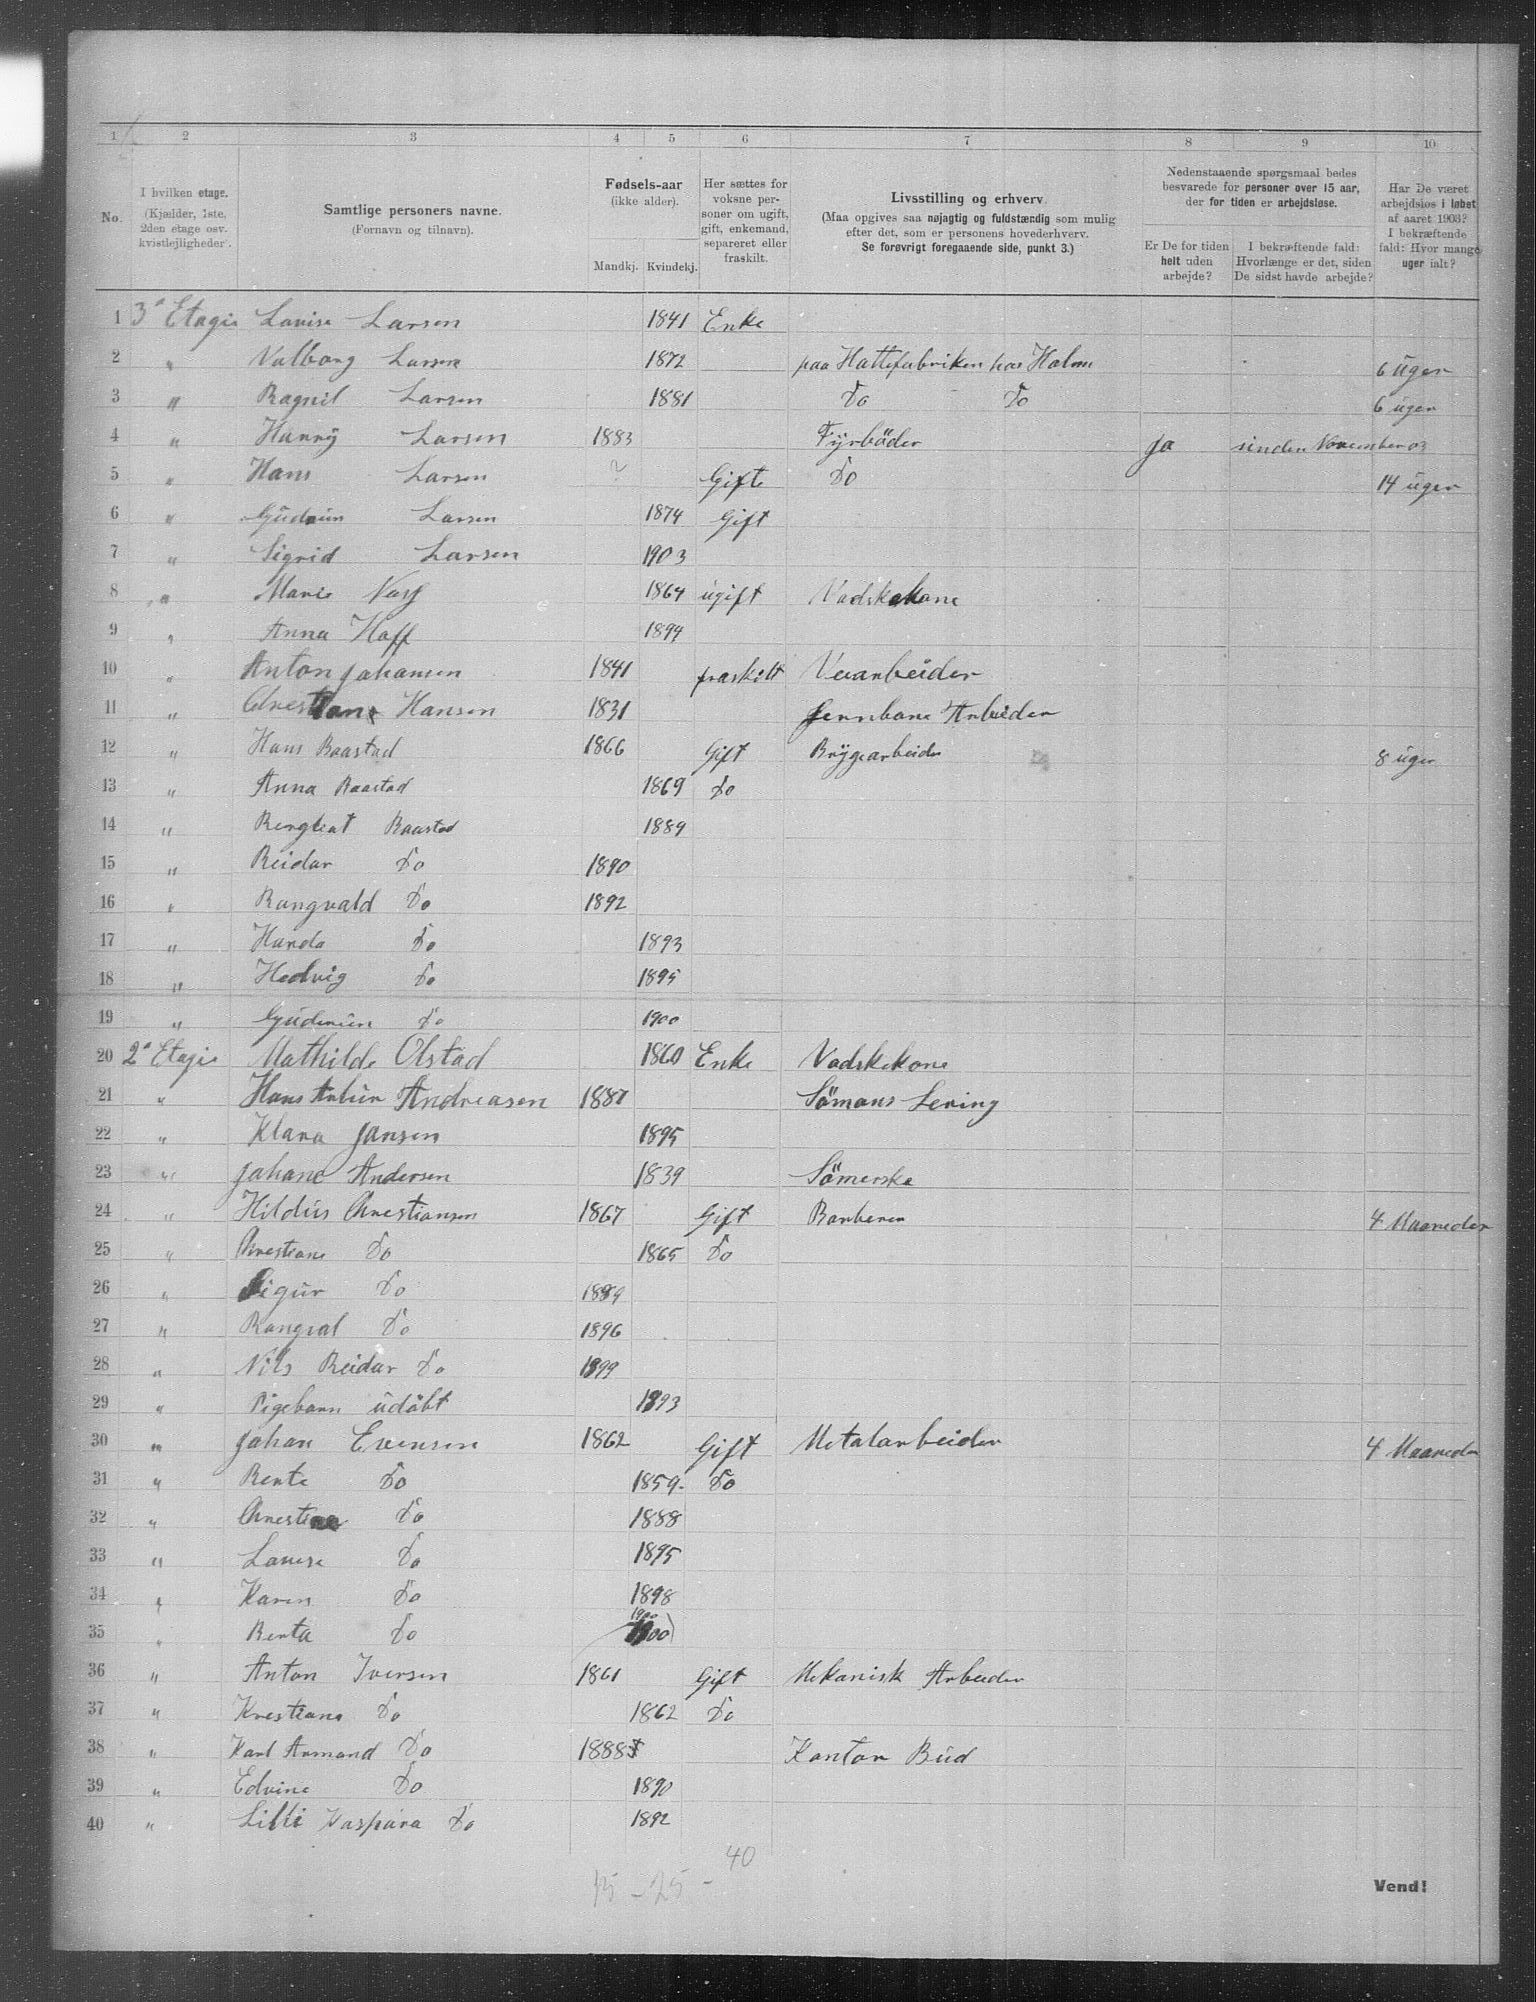 1 2 3 4 5 6 7 8 9 10
No.
I hvilken etage.
(Kjælder, 1ste,
2den etage osv.
kvistlejligheder).
Samtlige personers navne.
(Fornavn og tilnavn).
Fødsels-aar
(ikke alder).
Mandkj. Kvindekj.
Her sættes for
voksne per-
soner om ugift,
gift, enkemand,
separeret eller
fraskilt.
Livsstilling og erhverv.
(Maa opgives saa nøjagtig og fuldstændig som mulig
efter det, som er personens hovederhverv.
Se forøvrigt foregaaende side, punkt 3.)
Nedenstaaende spørgsmaal bedes
besvarede for personer over 15 aar,
der for tiden er arbejdsløse.
Er De for tiden
helt uden
arbejde?
I bekræftende fald:
Hvorlænge er det, siden
De sidst havde arbejde?
Har De været
arbejdsløs i løbet
af aaret 1903?
I bekræftende
fald: Hvor mange
uger ialt?
1 3' Etagie Lovise Larsen 1841 Enke
2 " Valborg Larsen 1872 paa Hattefabriken hos Holm 6 uger
3 " Ragnil Larsen 1881 Do Do 6 uger
4 " Harry Larsen 1883 Fyrböder ja sinden November 03
5 " Hans Larsen ? Gifte Do 14 uger
6 " Gudrun Larsen 1874 Gift
7 " Sigrid Larsen 1903
8 " Marie 1864 ugift Vadskekone
9 " Anna Hoff 1894
10 " Anton Johansen 1841 fraskilt Veiarbeider
11 " Hansen 1831 Jernbane Arbeider
12 " Hans Baastad 1866 Gift Brygearbeider 8 uger
13 " Anna Baastad 1869 Do
14 " Baastad 1889
15 " Reidar Do 1890
16 " Rangvald Do 1892
17 " Do 1893
18 " Hedvig Do 1895
19 " Do 1900
20 2' Etagie Mathilde Olstad 1860 Enke Vadskekone
21 " Hans Andreasen 1887 Sömans Lering
22 " Klara Jansen 1895
23 " Johane Andersen 1839 Sömerske
24 " Hildus Chrestiansen 1867 Gift Barberer 4 Maaneder
25 " Chrestiane Do 1865 Do
26 " Sigur Do 1889
27 " Rangval Do 1896
28 " Nils Reidar Do 1899
29 " Pigebarn udöbt
30 " Johan Evensen 1862 Gift Metalarbeider 4 Maaneder
31 " Bente Do 1859 Do
32 " Do 1888
33 " Lovise Do 1895
34 " Karen Do 1898
35 " Berta Do 1900
36 " Anton Iversen 1861 Gift Mekanisk Arbeider
37 " Krestiane Do 1862 Do
38 " Karl Armand Do 1888 Kontor Bud
39 " Edvine Do 1890
40 " Lilli Kaspara Do 1892
40
15 - 25 -
Vend!